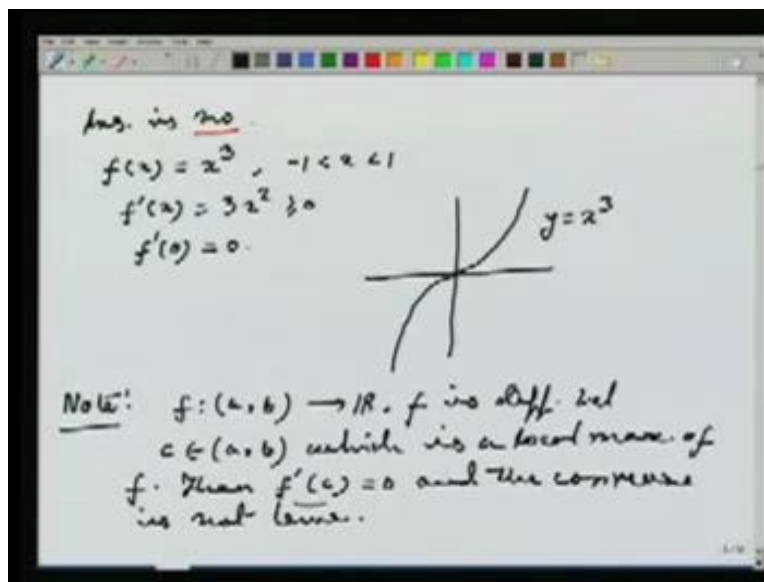 Ans. is no.
f(x) = x³, -1 < x < 1
f'(x) = 3x² ≥ 0
f'(0) = 0.
y = x³
Note: f : (a, b) → IR. f is diff. Let
c ∈ (a, b) which is a local max. of
f. Then f'(c) = 0 and the converse
is not true.